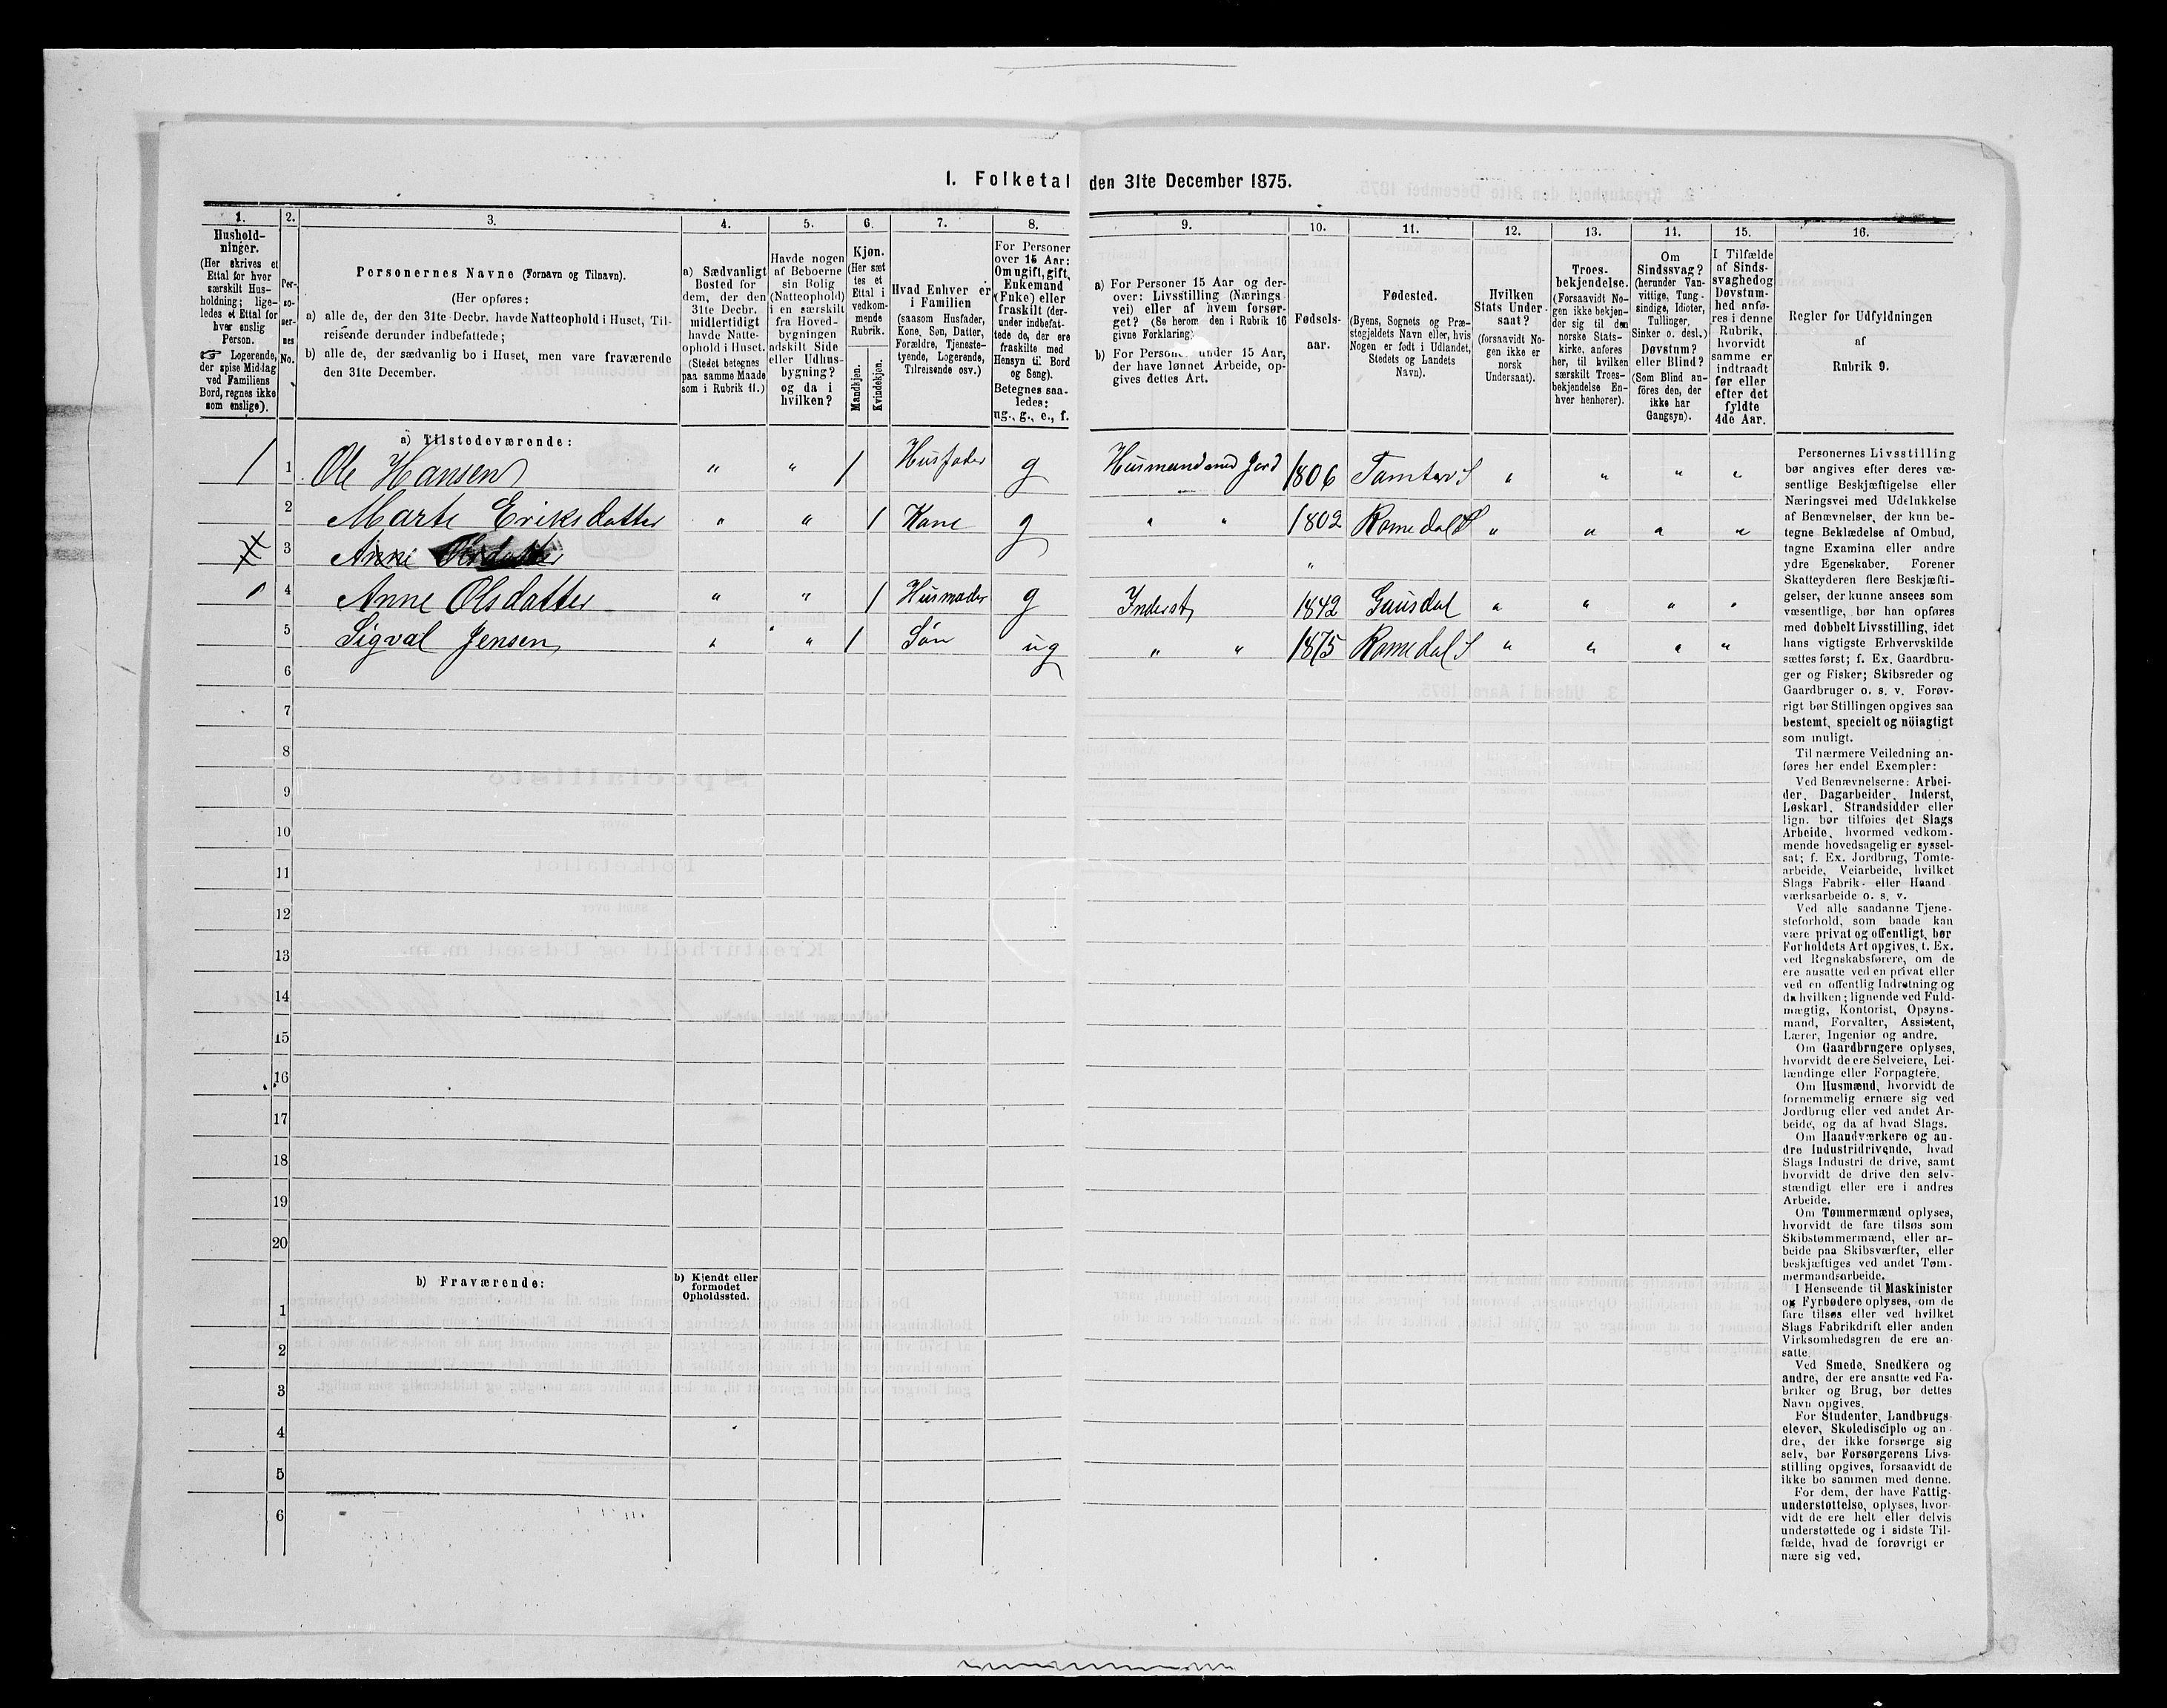 I. Folketal den 31te December 1875.
1. 2. 3. 4. 5. 6. 7. 8. 9. 10. 11. 12. 13. 14. 15. 16.
Hushold-
ninger.
(Her skrives et
Ettal for hver
særskilt Hus-
holdning; lige-
ledes et Ettal for
hver enslig
Person.
☞ Logerende,
der spise Middag
ved Familiens
Bord, regnes ikke
som enslige).
Per-
so-
ner-
nes
No.
Personernes Navne (Fornavn og Tilnavn).
(Her opføres:
a) alle de, der den 31te Decbr. havde Natteophold i Huset, Til-
reisende derunder indbefattede;
b) alle de, der sædvanlig bo i Huset, men vare fraværende
den 31te December.
a) Sædvanligt
Bosted for
dem, der den
31te Decbr.
midlertidigt
havde Natte-
ophold i Huset.
(Stedet betegnes
paa samme Maade
som i Rubrik 11.)
Havde nogen
af Beboerne
sin Bolig
(Natteophold)
i en særskilt
fra Hoved-
bygningen
adskilt Side
eller Udhus-
bygning?
og da i
hvilken?
Kjøn.
(Her sæt
tes et
Ettal i
vedkom-
mende
Rubrik.
Mandkjøn.
Kvindekjøn.
Hvad Enhver er
i Familien
(saasom Husfader,
Kone, Søn, Datter,
Forældre, Tjeneste-
tyende, Logerende,
Tilreisende osv.)
For Personer
over 15 Aar:
Om ugift, gift,
Enkemand
(Enke) eller
fraskilt (der-
under indbefat-
tede de, der ere
fraskilte med
Hensyn til Bord
og Seng).
Betegnes saa-
ledes:
ug., g., e., f.
a) For Personer 15 Aar og der-
over: Livsstilling (Nærings
vei) eller af hvem forsør-
get? (Se herom den i Rubrik 16
givne Forklaring).
b) For Personer under 15 Aar,
der have lønnet Arbeide, op-
gives dettes Art.
Fødsels-
aar.
Fødested.
(Byens, Sognets og Præ-
stegjeldets Navn eller, hvis
Nogen er født i Udlandet,
Stedets og Landets
Navn).
Hvilken
Stats Under-
saat?
(forsaavidt No-
gen ikke er
norsk
Undersaat).
Troes-
bekjendelse.
(Forsaavidt No-
gen ikke bekjen-
der sig til den
norske Stats-
kirke, anføres
her, til hvilken
særskilt Troes-
bekjendelse En-
hver henhører).
Om
Sindssvag?
(herunder Van-
vittige, Tung-
sindige, Idioter,
Tullinger,
Sinker o. desl.)
Døvstum?
eller Blind?
(Som Blind an-
føres den, der
ikke har
Gangsyn).
I Tilfælde
af Sinds-
svaghed og
Døvstum-
hed anfø-
res i denne
Rubrik,
hvorvidt
samme er
indtraadt
før eller
efter det
fyldte
4de Aar.
Regler for Udfyldningen
af
Rubrik 9.
a) Tilstedeværende:
1 1 Ole Hansen " " 1 Husfader g Husmand med Jord 1806 Tomter S " " " "
2 Marte Eriksdatter " " 1 Kone g " " 1802 Romedal S " " " "
3 Anne Olsdatter g "
1 4 Anne Olsdatter " " 1 Husmoder g Inderst 1842 Gausdal " " " "
5 Sigval Jensen " " 1 Søn ug " " 1875 Romedal S " " " "
6
7
8
9
10
11
12
13
14
15
16
17
18
19
20
b) Fraværende:
b) Kjendt eller
formodet
Opholdssted.
1
2
3
4
5
6
Personernes Livsstilling
bør angives efter deres væ-
sentlige Beskjæftigelse eller
Næringsvei med Udelukkelse
af Benævnelser, der kun be-
tegne Beklædelse af Ombud,
tagne Examina eller andre
ydre Egenskaber. Forener
Skatteyderen flere Beskjæfti-
gelser, der kunne ansees som
væsentlige, bør han opføres
med dobbelt Livsstilling, idet
hans vigtigste Erhvervskilde
sættes først; f. Ex. Gaardbru-
ger og Fisker; Skibsreder og
Gaardbruger o. s. v. Forøv-
rigt bør Stillingen opgives saa
bestemt, specielt og nöiagtigt
som muligt.
Til nærmere Veiledning an-
føres her endel Exempler:
Ved Benævnelserne: Arbei-
der, Dagarbeider, Inderst,
Løskarl, Strandsidder eller
lign. bør tilføies det Slags
Arbeide, hvormed vedkom-
mende hovedsagelig er syssel-
sat; f. Ex. Jordbrug, Tomte-
arbeide, Veiarbeide, hvilket
Slags Fabrik- eller Haand
værksarbeide o. s. v.
Ved alle saadanne Tjene-
steforhold, som baade kan
være privat og offentligt, bør
Forholdets Art opgives, t. Ex.
ved Regnskabsførere, om de
ere ansatte ved en privat eller
ved en offentlig Indretning og
da hvilken; lignende ved Fuld-
mægtig, Kontorist, Opsyns-
mand, Forvalter, Assistent,
Lærer, Ingeniør og andre.
Om Gaardbrugere oplyses,
hvorvidt de ere Selveiere, Lei-
lændinge eller Forpagtere.
Om Husmænd, hvorvidt de
fornemmelig ernære sig ved
Jordbrug eller ved andet Ar-
beide, og da af hvad Slags.
Om Haandværkere og an-
dre Industridrivende, hvad
Slags Industri de drive, samt
hvorvidt de drive den selv-
stændigt eller ere i andres
Arbeide.
Om Tømmermænd oplyses,
hvorvidt de fare tilsøs som
Skibstømmermænd, eller ar-
beide paa Skibsværfter, eller
beskjæftiges ved andet Tøm-
mermandsarbeide.
I Henseende til Maskinister
og Fyrbødere oplyses, om de
fare tilsøs eller ved hvilket
Slags Fabrikdrift eller anden
Virksomhedsgren de ere an-
satte.
Ved Smede, Snedkere og
andre, der ere ansatte ved Fa-
briker og Brug, bør dettes
Navn opgives.
For Studenter, Landbrugs-
elever, Skoledisciple og an-
dre, der ikke forsørge sig
selv, bør Forsørgerens Livs-
stilling opgives, forsaavidt de
ikke bo sammen med denne.
For dem, der have Fattig-
understøttelse, oplyses, hvor-
vidt de ere helt eller delvis
understøttede og i sidste Til-
fælde, hvad de forøvrigt er
nære sig ved.